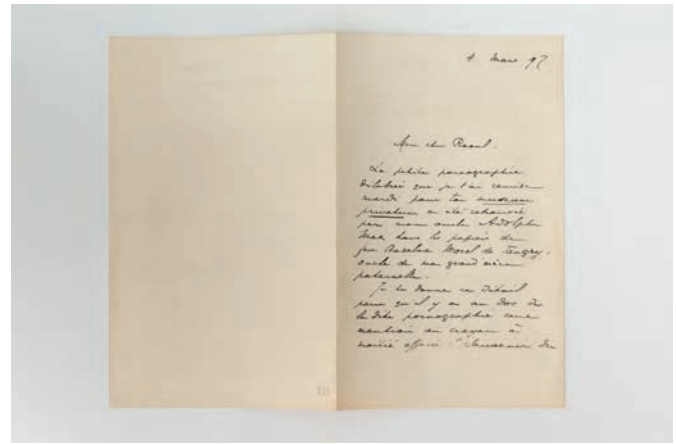 4 Mars 97
Mon cher Raoul.
La petite pornographie
délabrée que je t'ai remise
mardi pour ton museum
privatum a été retrouvée
par mon oncle Adolphe
Max dans les papiers de
feu Anselme Morel de Tangry,
oncle de ma grand'mère
paternelle.
Je te donne ce détail
parce qu'il y a au dos de
la dite pornographie une
mention au crayon à
moitié effacée : "Souvenir de